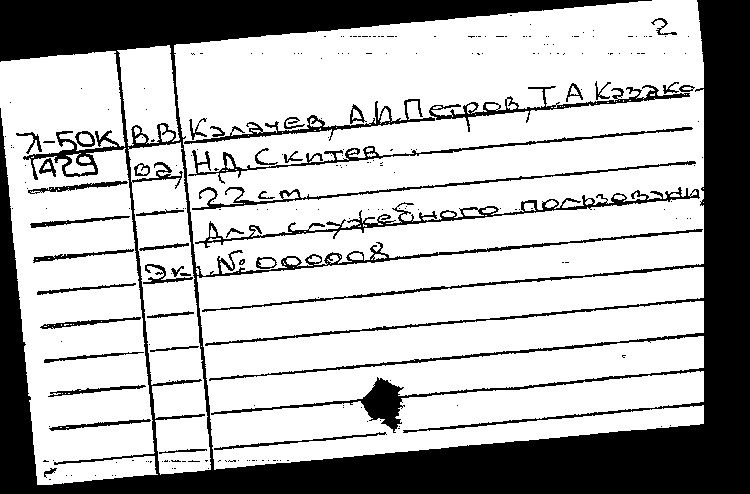 2
Л-БОК В.В. Калачев, А.И. Петров, Т.А Казако-
1429 ва, Н.Д. Скитев.
22 cm.
Для служебного пользования
Экз. №000008